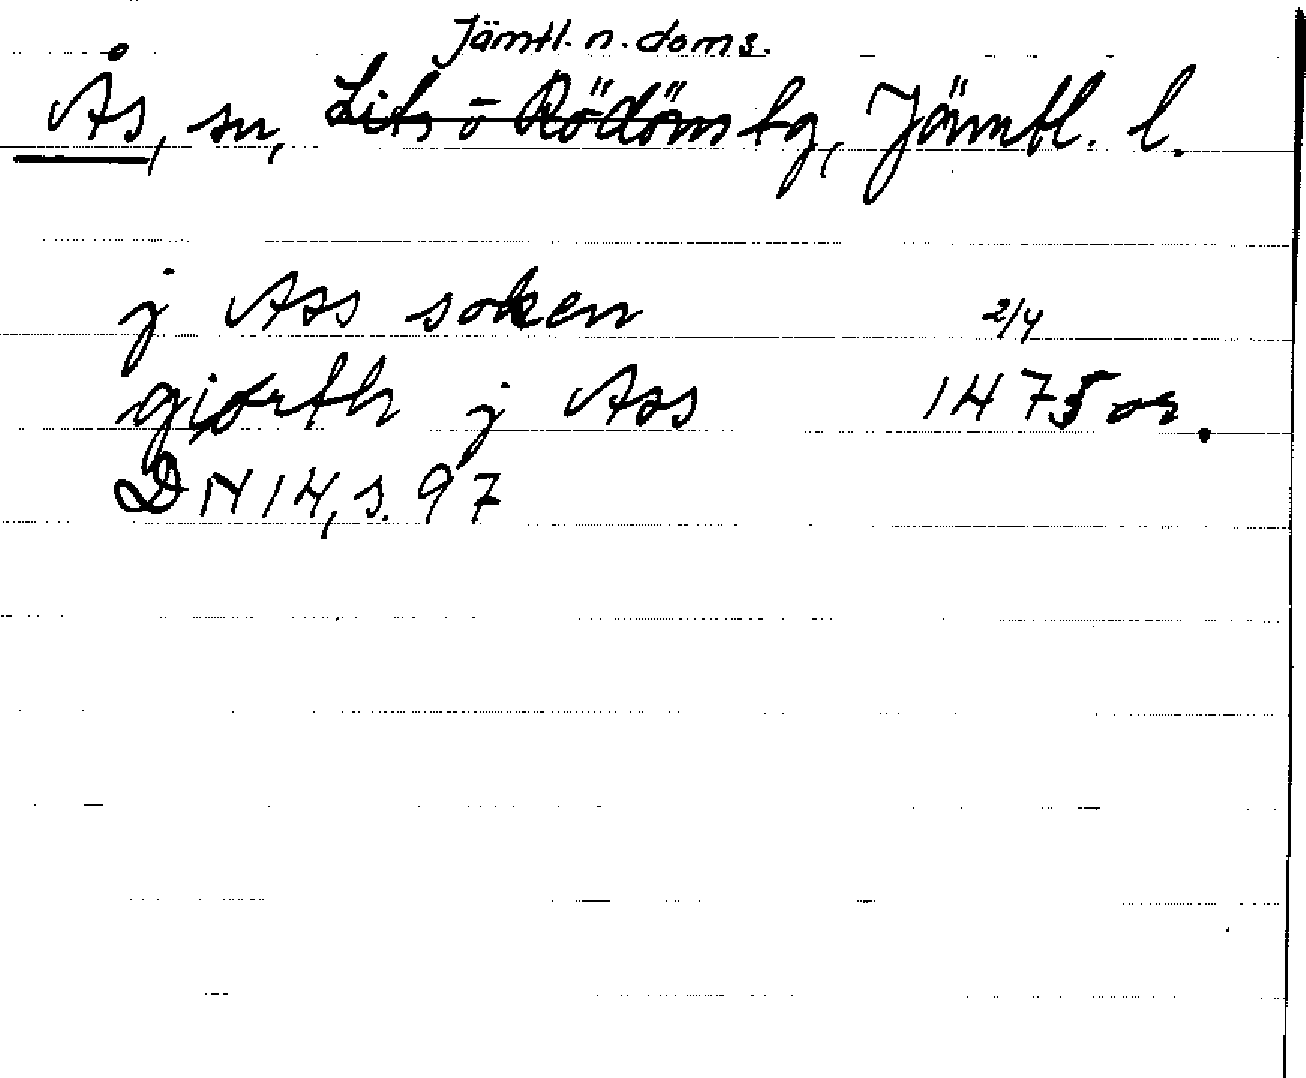 Jämtl. n. doms.
Ås, sn, Lits o Rödöns tg, Jämtl. l.
j Ass soken 2/4
giørth j Ass 1475 or.
DN 14, s. 97